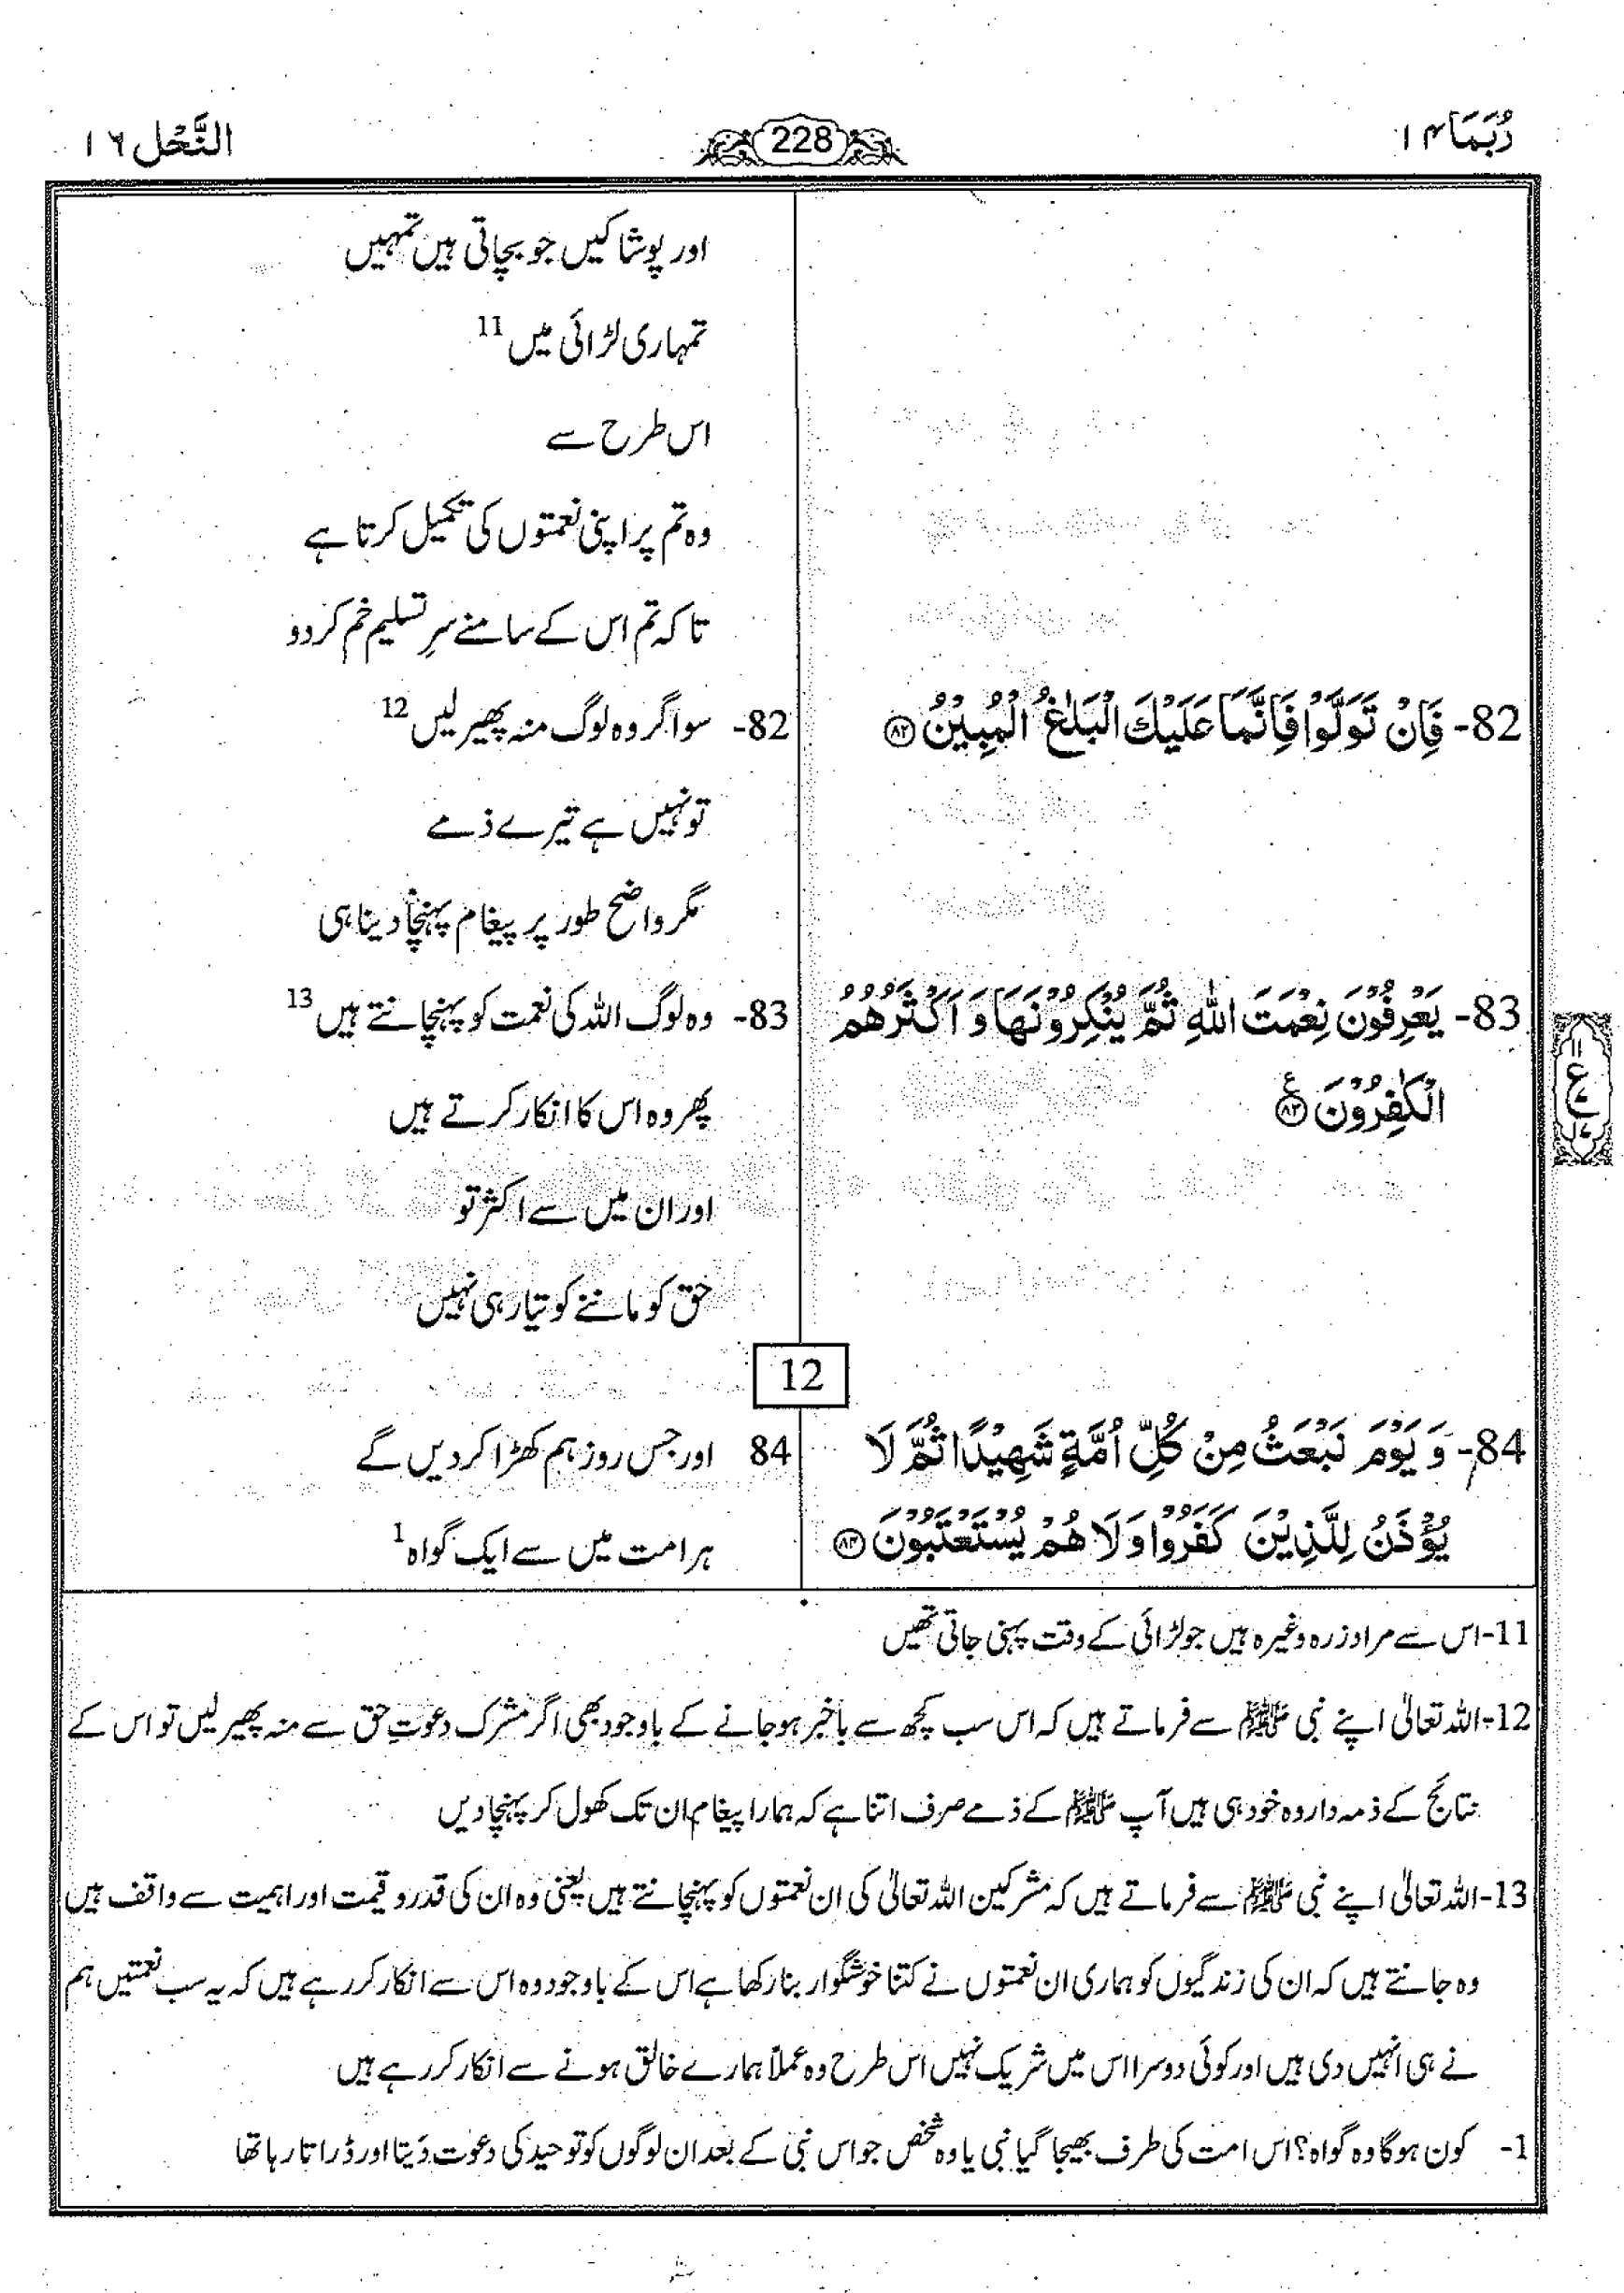 رُبَمَا ۱۴
228
النَّحْل ۱۶
اور پوشاکیں جو بچاتی ہیں تمہیں
تمہاری لڑائی میں 11
اس طرح سے
وہ تم پر اپنی نعمتوں کی تکمیل کرتا ہے
تاکہ تم اس کے سامنے سرِ تسلیم خم کر دو
82- فَاِنْ تَوَلَّوْا فَاِنَّمَا عَلَيْكَ الْبَلٰغُ الْمُبِيْنُ ﴿۸۲﴾
82- سو اگر وہ لوگ منہ پھیر لیں 12
تو نہیں ہے تیرے ذمے
مگر واضح طور پر پیغام پہنچا دینا ہی
83- يَعْرِفُوْنَ نِعْمَتَ اللّٰهِ ثُمَّ يُنْكِرُوْنَهَا وَ اَكْثَرُهُمُ
الْكٰفِرُوْنَ ﴿۸۳﴾ ع
83- وہ لوگ اللہ کی نعمت کو پہنچانتے ہیں 13
پھر وہ اس کا انکار کرتے ہیں
اور ان میں سے اکثر تو
حق کو ماننے کو تیار ہی نہیں
۱۱
ع
۱۷
12
84- وَ يَوْمَ نَبْعَثُ مِنْ كُلِّ اُمَّةٍ شَهِيْدًا ثُمَّ لَا
يُؤْذَنُ لِلَّذِيْنَ كَفَرُوْا وَلَا هُمْ يُسْتَعْتَبُوْنَ ﴿۸۴﴾
84 اور جس روز ہم کھڑا کر دیں گے
ہر امت میں سے ایک گواہ 1
11-اس سے مراد زرہ وغیرہ ہیں جو لڑائی کے وقت پہنی جاتی تھیں
12-اللہ تعالیٰ اپنے نبی ﷺ سے فرماتے ہیں کہ اس سب کچھ سے باخبر ہو جانے کے باوجود بھی اگر مشرک دعوتِ حق سے منہ پھیر لیں تو اس کے
نتائج کے ذمہ دار وہ خود ہی ہیں آپ ﷺ کے ذمے صرف اتنا ہے کہ ہمارا پیغام ان تک کھول کر پہنچا دیں
13-اللہ تعالیٰ اپنے نبی ﷺ سے فرماتے ہیں کہ مشرکین اللہ تعالیٰ کی ان نعمتوں کو پہنچانتے ہیں یعنی وہ ان کی قدر و قیمت اور اہمیت سے واقف ہیں
وہ جانتے ہیں کہ ان کی زندگیوں کو ہماری ان نعمتوں نے کتنا خوشگوار بنا رکھا ہے اس کے باوجود وہ اس سے انکار کر رہے ہیں کہ یہ سب نعمتیں ہم
نے ہی انہیں دی ہیں اور کوئی دوسرا اس میں شریک نہیں اس طرح وہ عملاً ہمارے خالق ہونے سے انکار کر رہے ہیں
1- کون ہوگا وہ گواہ؟ اس امت کی طرف بھیجا گیا نبی یا وہ شخص جو اس نبی کے بعد ان لوگوں کو توحید کی دعوت دیتا اور ڈراتا رہا تھا